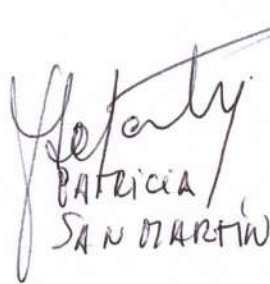 PATRICIA
SAN MARTÍN